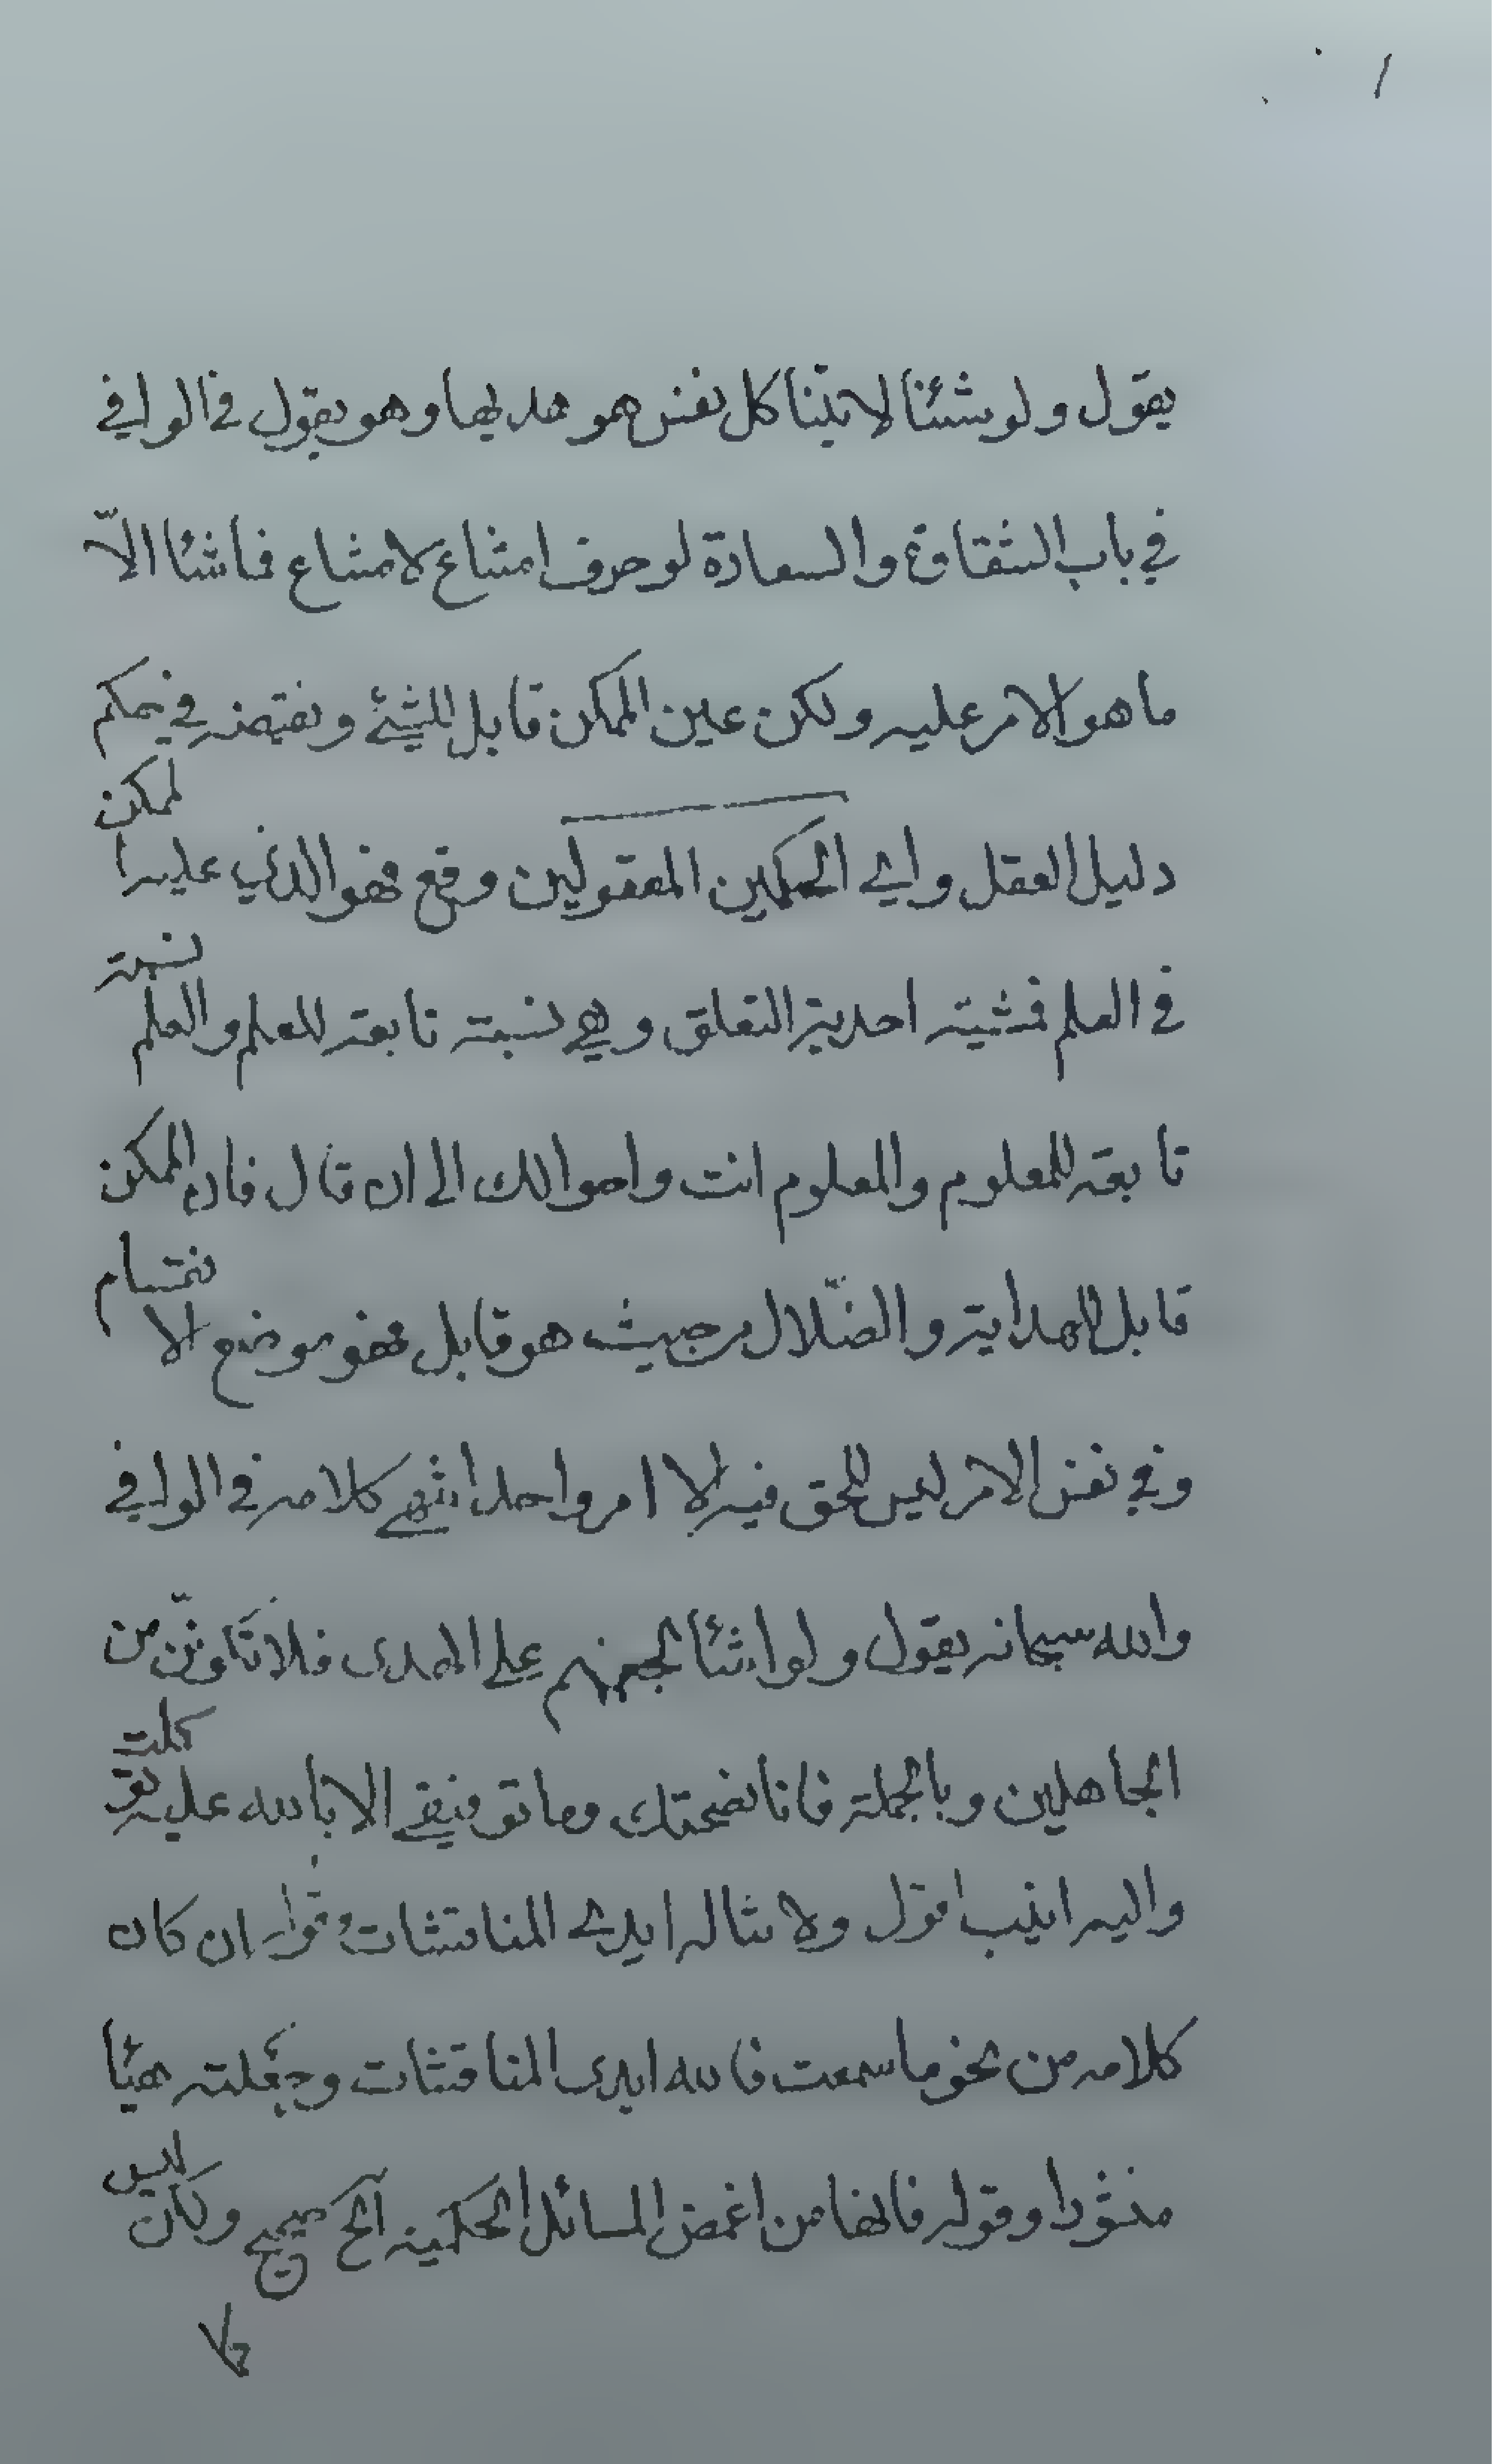 يقول ولو شئنا لاتينا كل نفس هو هديها وهو يقول في الوافي
في باب الشقاوة والسعادة لو حرف امتناع لامتناع فما شئا الّا
ما هو الامر عليه ولكن عين الممكن قابل للشئ ونقيضه في حكم
دليل العقل واي الحكمين المعقولين وقع فهو الذي عليه الممكن
في العلم فمشيته احدية التعلق وهي نسبة تابعة للعلم والعلم نسبة
تابعة للمعلوم والمعلوم انت واحوالك الى ان قال فان الممكن
قابل للهداية والضّلال من حيث هو قابل فهو موضع الانقسام
وفي نفس الامر ليس للحق فيه الا امر واحد انتهى كلامه في الوافي
والله سبحانه يقول ولو شئا لجمعهم على الهدى فلا تكوننّ من
الجاهلين وبالجملة فانا نضحتك وما توفيقي الا بالله عليه توكلت
واليه انيب اقول ولا تناله ايدي المناقشات وقوله ان كان
كلامه من نحو ما سمعت فالله ايدي المناقشات وجعلته هبئا
منثورا وقوله فانها من اغمض المسائل الحكمية الخ صحيح ولكن ليس